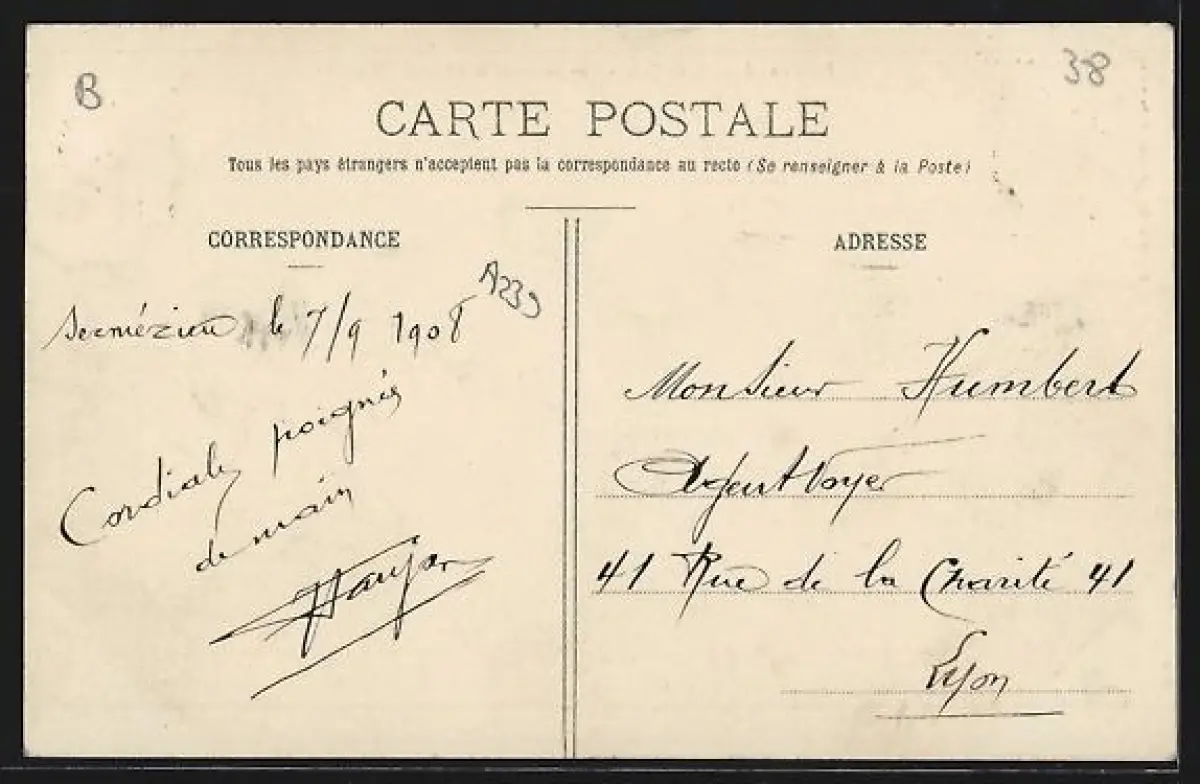 B
38
CARTE POSTALE
Tous les pays étrangers n'acceptent pas la correspondance au recto (Se renseigner à la Poste)
CORRESPONDANCE
A239
Sermérieu le 7/9 1908
Cordiales poignés
de main
ADRESSE
Monsieur Humbert
Agent Voyer
41 Rue de la Charité 41
Lyon